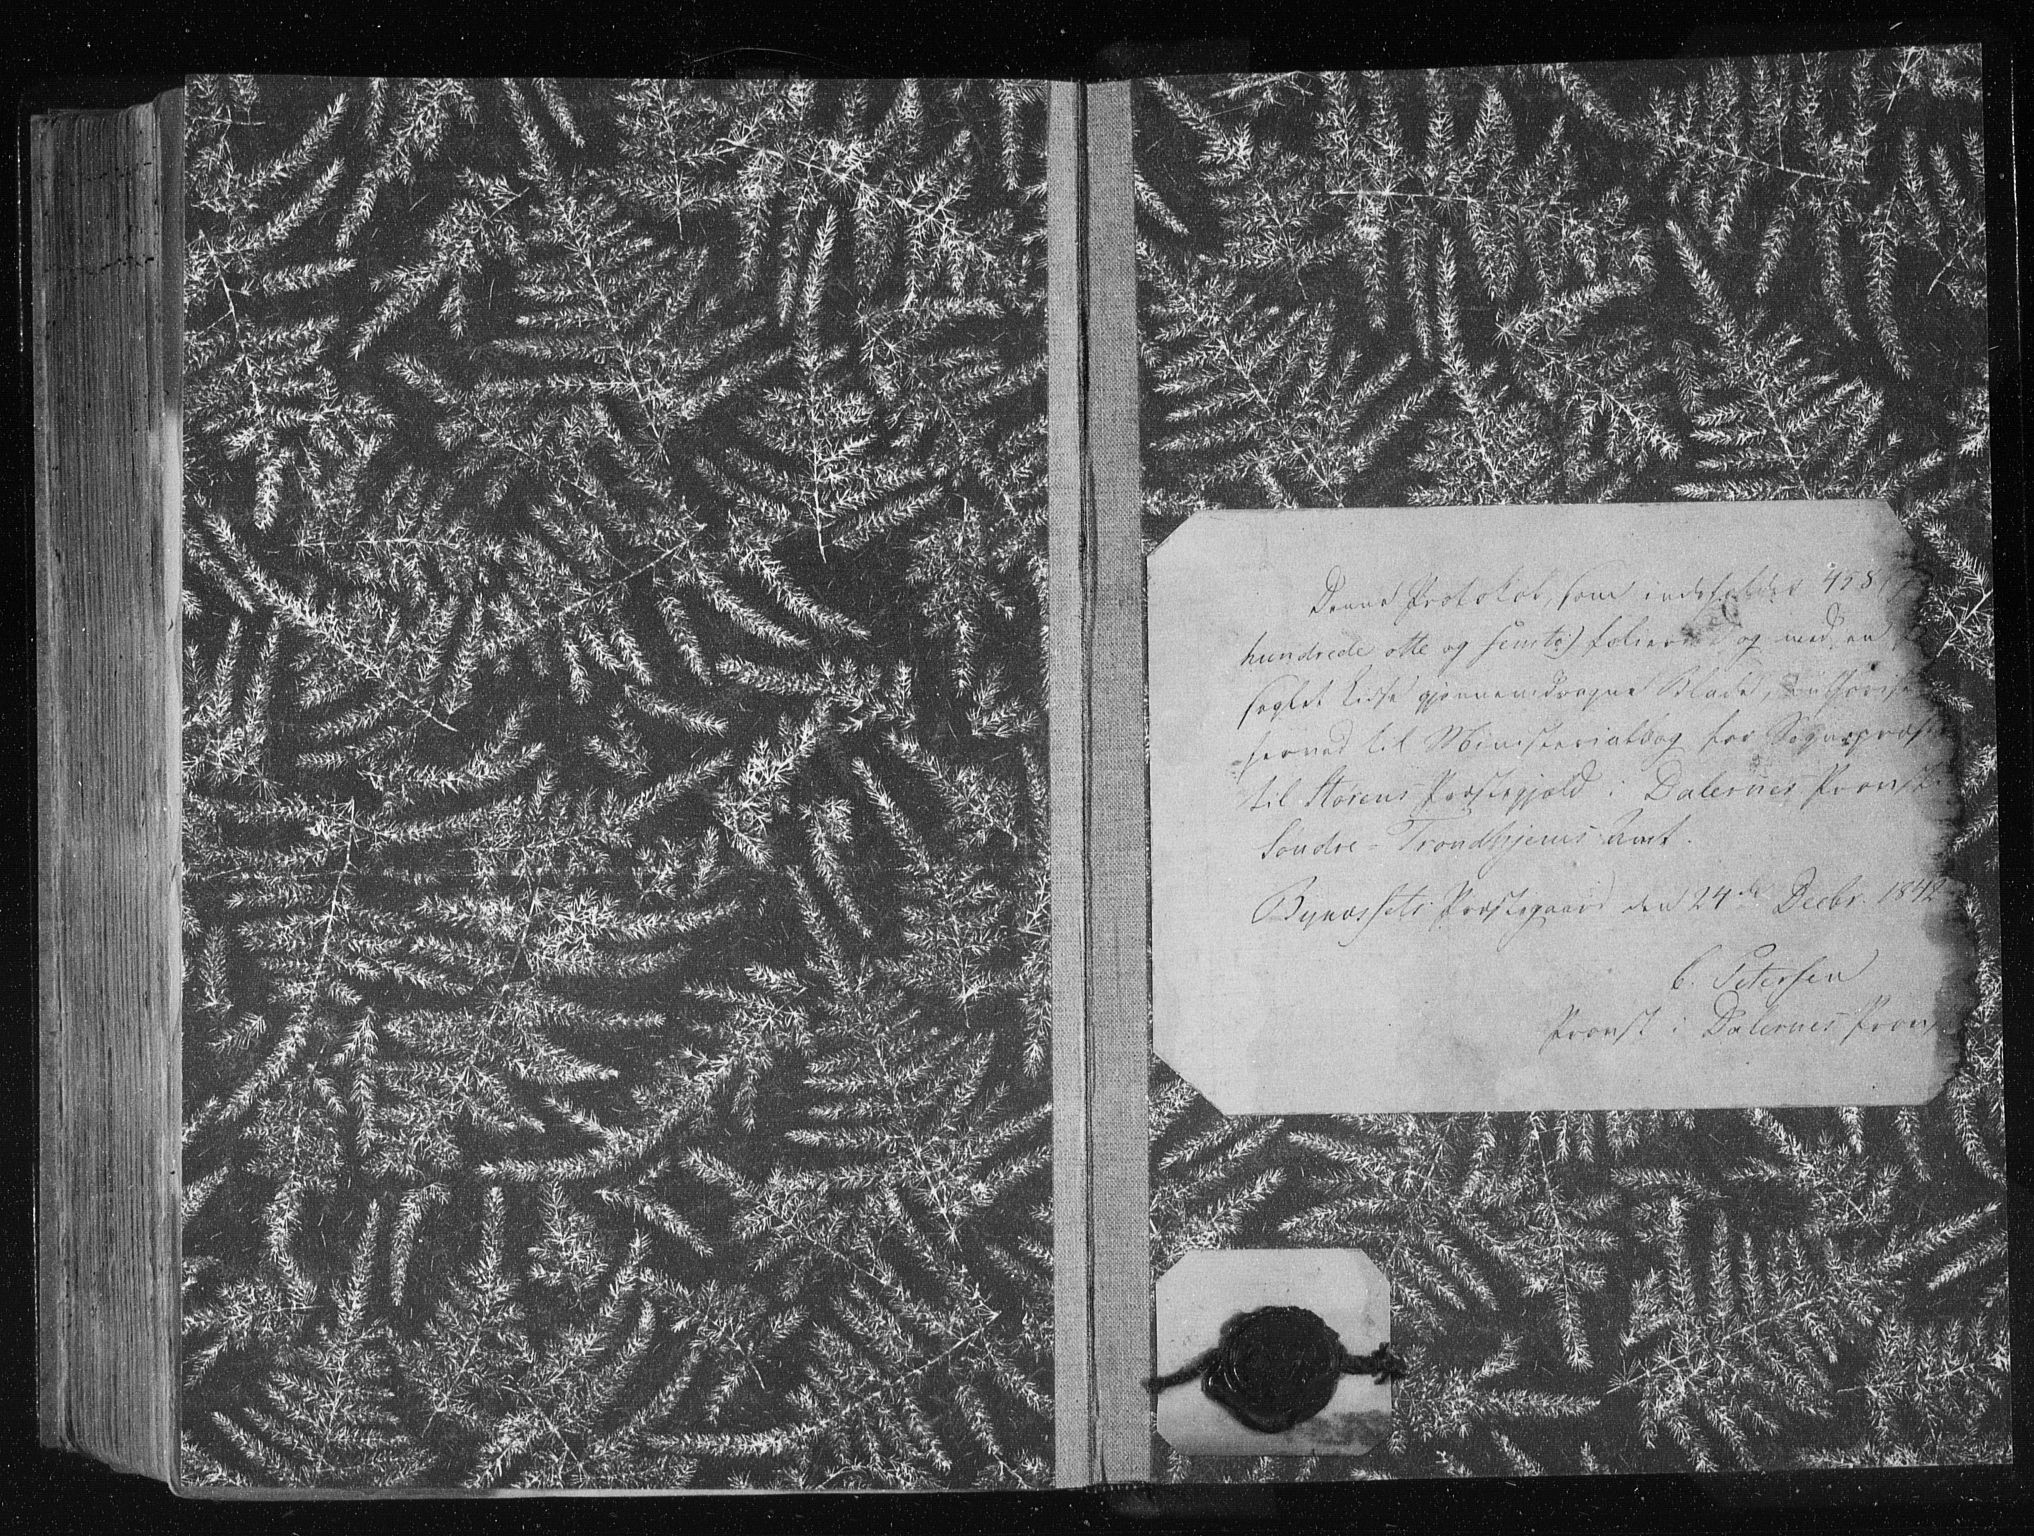 Denne Protokol, som indeholder 458 (
hundrede otte og femti) folierede og med en
seglet Lidse gjennemdragne Blade, authorise
herved til Ministerialbog for Sognepræst
til Størens Præstegjeld i Dalernes Provsti
Søndre-Trondhjems Amt.
Bynæssets Præstegaard den 24de Decbr. 1842
C. Petersen
Provst i Dalernes Provs